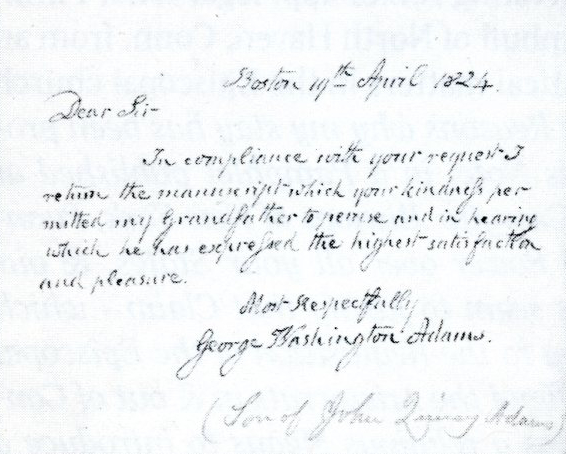 Boston 19th April 1824
Dear Sir
In compliance with your request I
return the manuscript which your kindness per
mitted my Grandfather to peruse and in hearing
which he has expressed the highest satisfaction
and pleasure.
Most Respectfully
George Washington Adams.
(Son of John Quincy Adams)